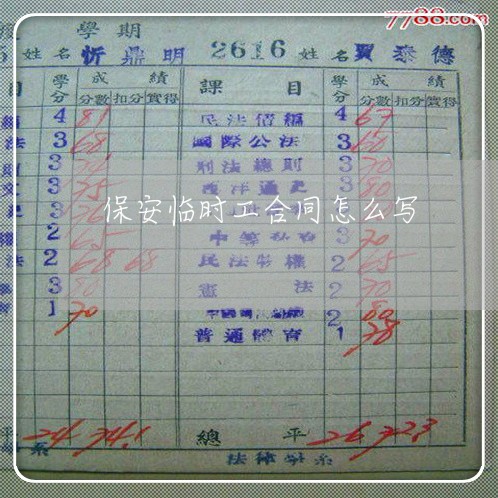 7788.com
度 學期
5 姓名 忻鼎明 2616 姓名 賈泰德
目 學分 成績 課目 學分 成績
分數 扣分 實得 分數 扣分 實得
4 81 民法債編 4 67
法 3 68 國際公法 3 60
3 刑法總則 3 70
3 75 西洋通史 3 80
保安临时工合同怎么写
2 65 3 70
法 2 68 68 民法物權 2 65
3 80 憲法 2 70
1 70 2 80
普通體育 1 78
平 24 74.1 總平 26 72.3
系 法律學系